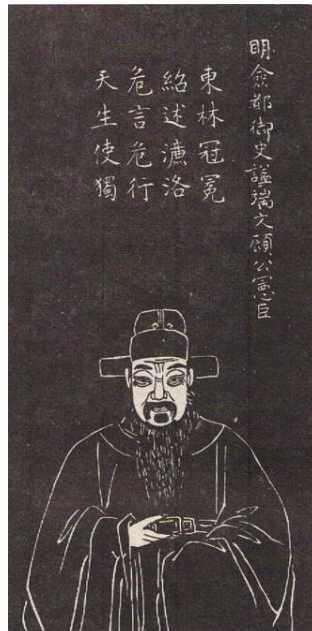 明僉都御史諡端文顧公憲臣
東林冠冕
紹述濂洛
危言危行
天生使獨